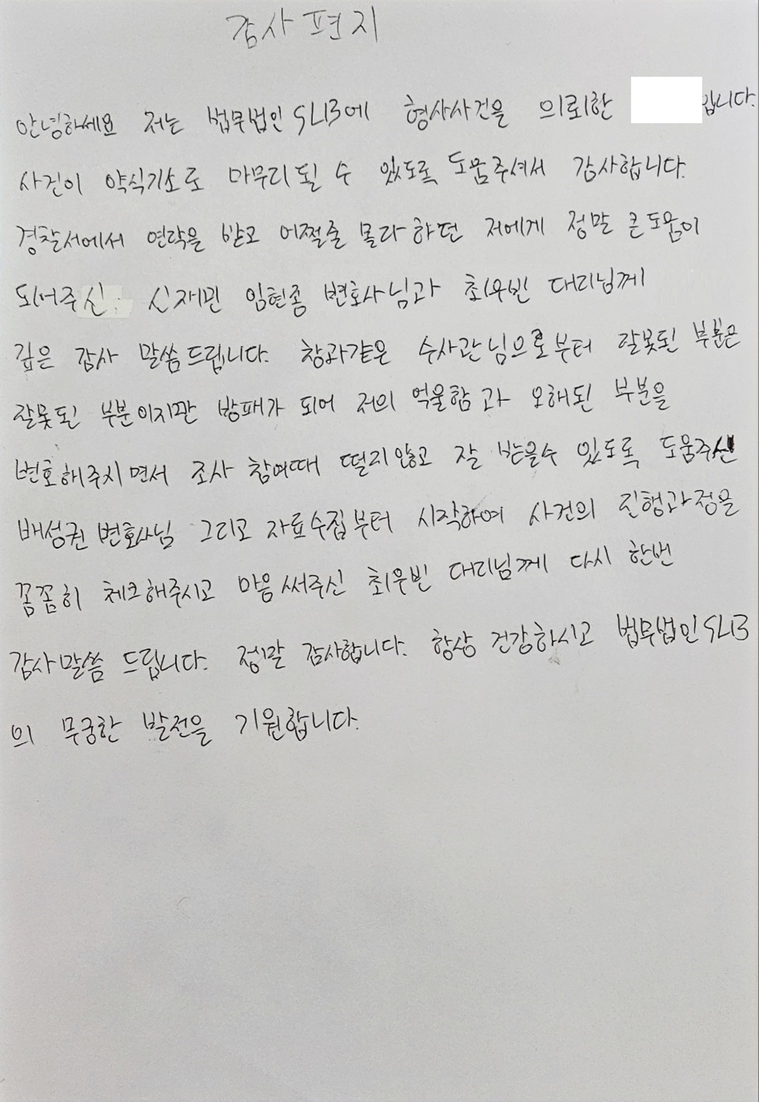 감사 편지
안녕하세요 저는 법무법인 SLB에 형사사건을 의뢰한 입니다.
사건이 약식기소로 마무리 될 수 있도록 도움주셔서 감사합니다.
경찰서에서 연락을 받고 어쩔줄 몰라 하던 저에게 정말 큰 도움이
되어주신 신재민 임현종 변호사님과 최우빈 대리님께
깊은 감사 말씀 드립니다. 창과같은 수사관님으로부터 잘못된 부분은
잘못된 부분이지만 방패가 되어 저의 억울함과 오해된 부분을
변호해주시면서 조사 참여때 떨지않고 잘 받을수 있도록 도움주신
배성권 변호사님 그리고 자료수집부터 시작하여 사건의 진행과정을
꼼꼼히 체크해주시고 마음써주신 최우빈 대리님께 다시 한번
감사말씀 드립니다. 정말 감사합니다. 항상 건강하시고 법무법인 SLB
의 무궁한 발전을 기원합니다.